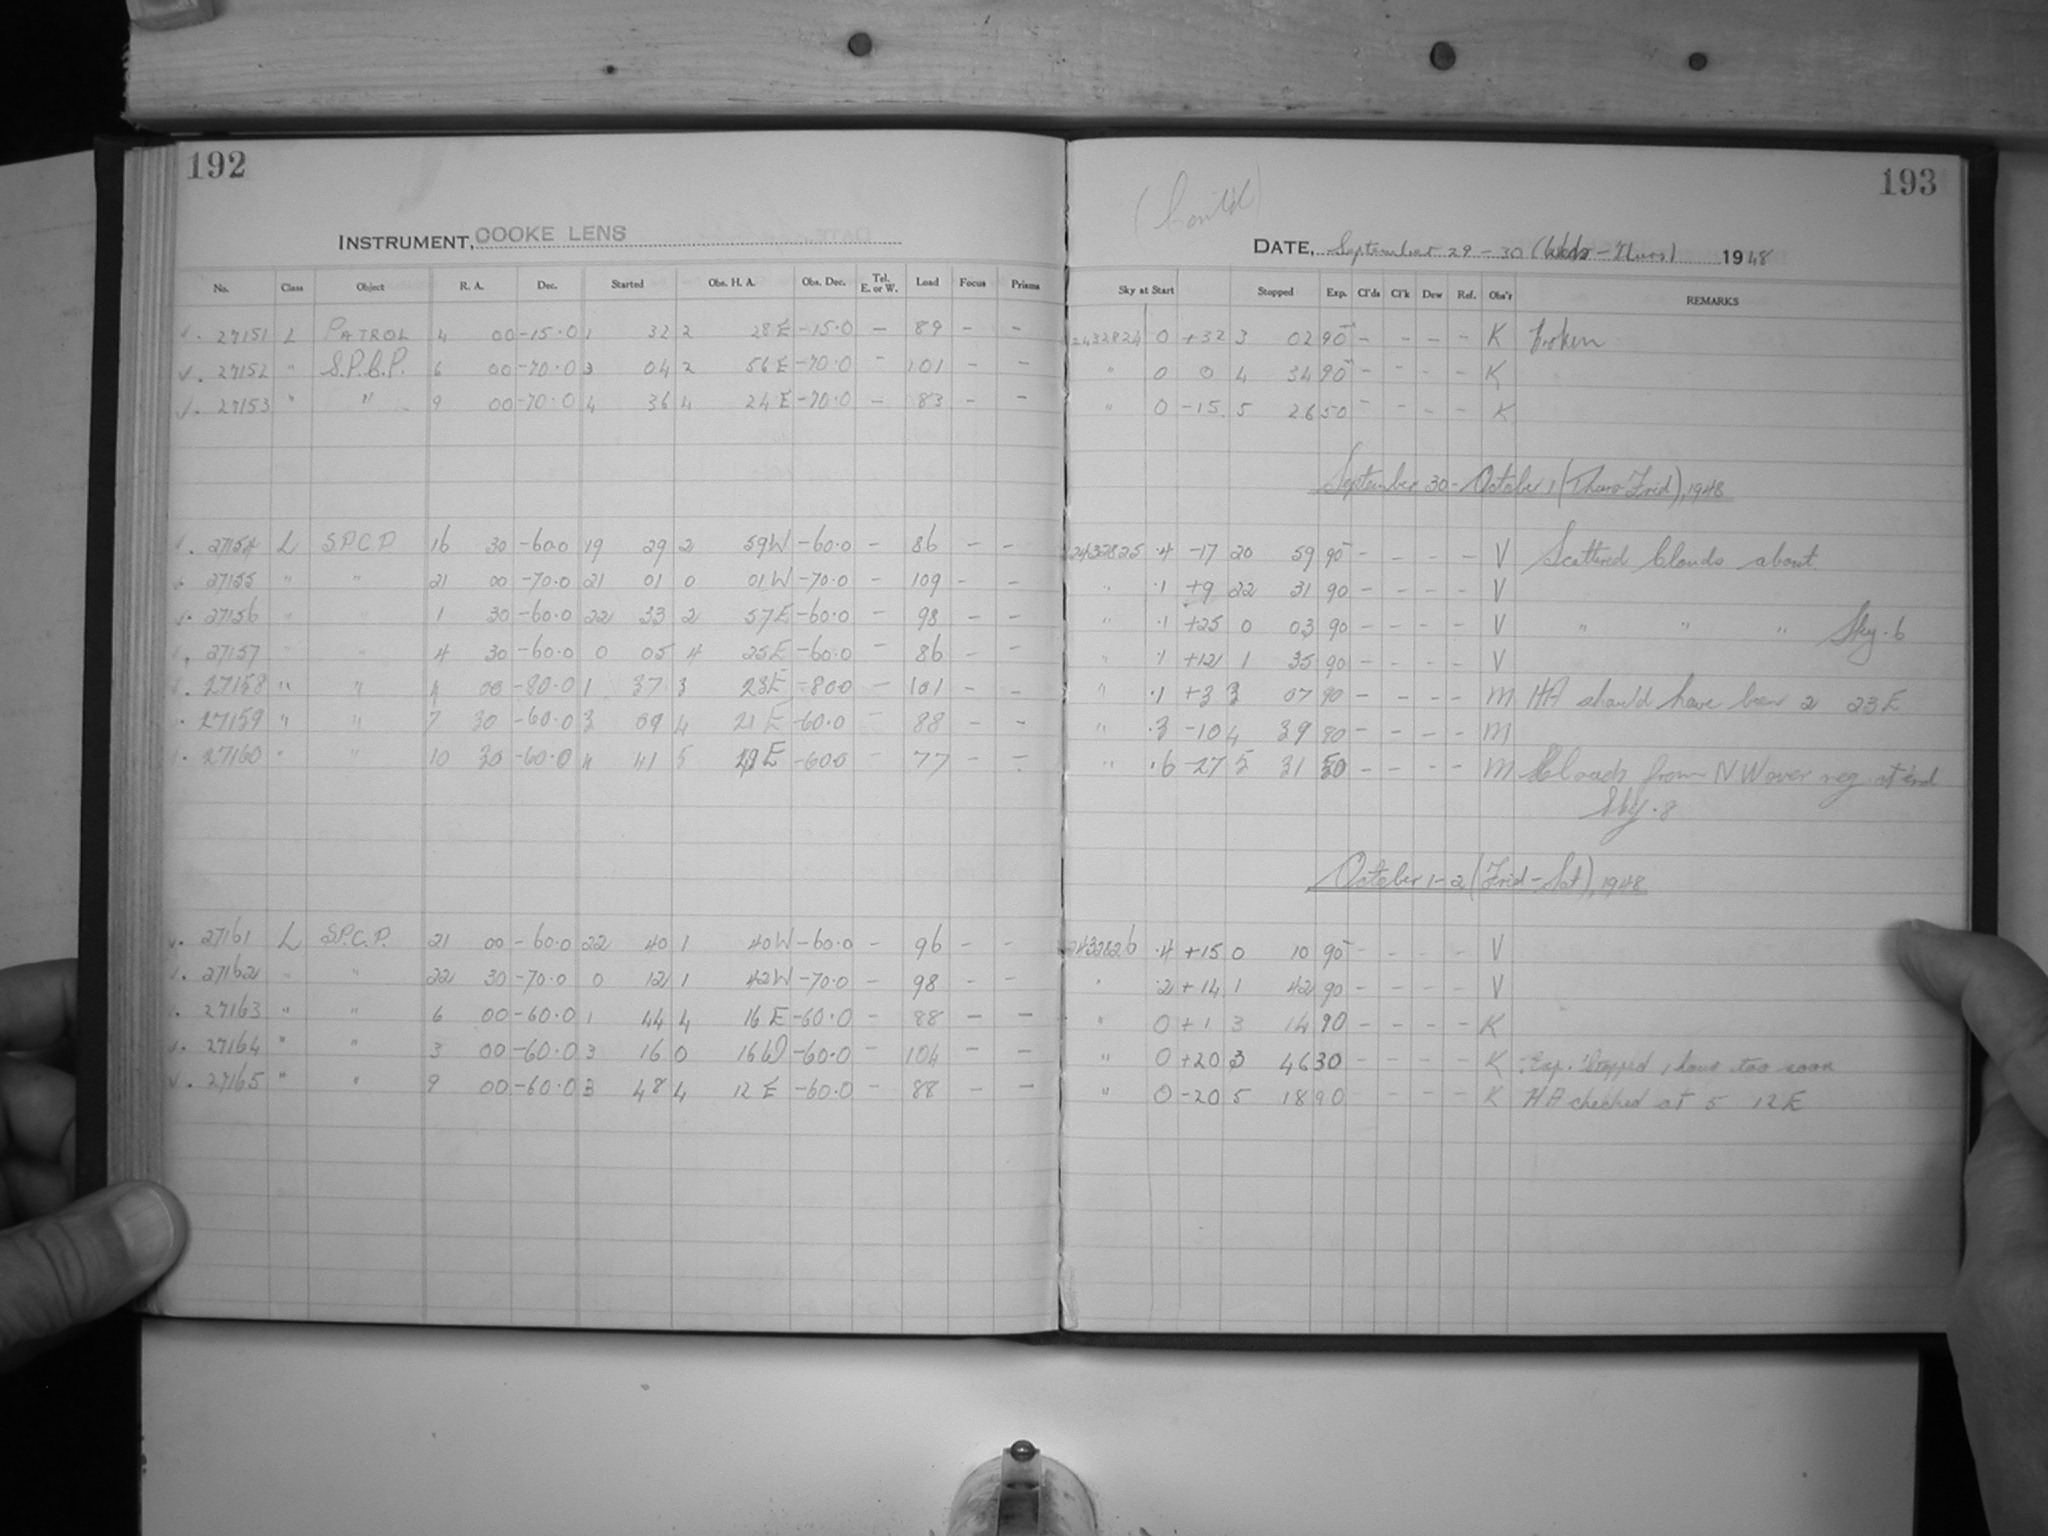 192
INSTRUMENT, COOKE LENS
No. Class Object R. A. Dec. Started Obs. H. A. Obs. Dec. Tel. E. or W. Load Focus Prisms
✓. 27151 L PATROL 4 00 -15.0 1 32 2 28 E -15.0 - 89 - -
✓. 27152 " S.P.C.P. 6 00 -70.0 3 04 2 56 E -70.0 - 101 - -
✓. 27153 " " 9 00 -70.0 4 36 4 24 E -70.0 - 83 - -
✓. 27154 L S.P.C.P. 16 30 -60.0 19 29 2 59 W -60.0 - 86 - -
27155 " " 21 00 -70.0 21 01 0 01 W -70.0 - 109 - -
✓. 27156 " " 1 30 -60.0 22 33 2 57 E -60.0 - 98 - -
27157 " " 4 30 -60.0 0 05 4 25 E -60.0 - 86 - -
27158 " " 4 00 -80.0 1 37 3 23 E -80.0 - 101 - -
27159 " " 7 30 -60.0 3 09 4 21 E -60.0 - 88 - -
27160 " " 10 30 -60.0 4 41 5 E -60.0 - 77 - -
✓. 27161 L S.P.C.P. 21 00 -60.0 22 40 1 40 W -60.0 - 96 - -
✓. 27162 " " 22 30 -70.0 0 12 1 42 W -70.0 - 98 - -
27163 " " 6 00 -60.0 1 44 4 16 E -60.0 - 88 - -
✓. 27164 " " 3 00 -60.0 3 16 0 16 W -60.0 - 104 - -
✓. 27165 " " 9 00 -60.0 3 48 4 12 E -60.0 - 88 - -
193
(Cont'd)
DATE, September 29-30 (Wed-Thurs) 1948
Sky at Start Stopped Exp. Cl'ds Cl'k Dew Ref. Obs'r REMARKS
2432824 0 +32 3 02 90 - - - - K Broken
" 0 0 4 34 90 - - - - K
" 0 -15 5 26 50 - - - - K
September 30-October 1 (Thurs-Frid), 1948
2432825 .4 -17 20 59 90 - - - - V Scattered Clouds about.
" .1 +9 22 31 90 - - - - V
" .1 +25 0 03 90 - - - - V " " " Sky .6
" .1 +12 1 35 90 - - - - V
" .1 +3 3 07 90 - - - - M HA should have been 2 23 E
" .3 -10 4 39 90 - - - - M
" .6 -27 5 31 50 - - - - M Clouds from NW over reg. at end
Sky .8
October 1-2 (Frid-Sat), 1948
2432826 .4 +15 0 10 90 - - - - V
" .2 +14 1 42 90 - - - - V
" 0 +1 3 14 90 - - - - K
" 0 +20 3 46 30 - - - - K Exp. Stopped 1 hour too soon
" 0 -20 5 18 90 - - - - K HA checked at 5 12 E